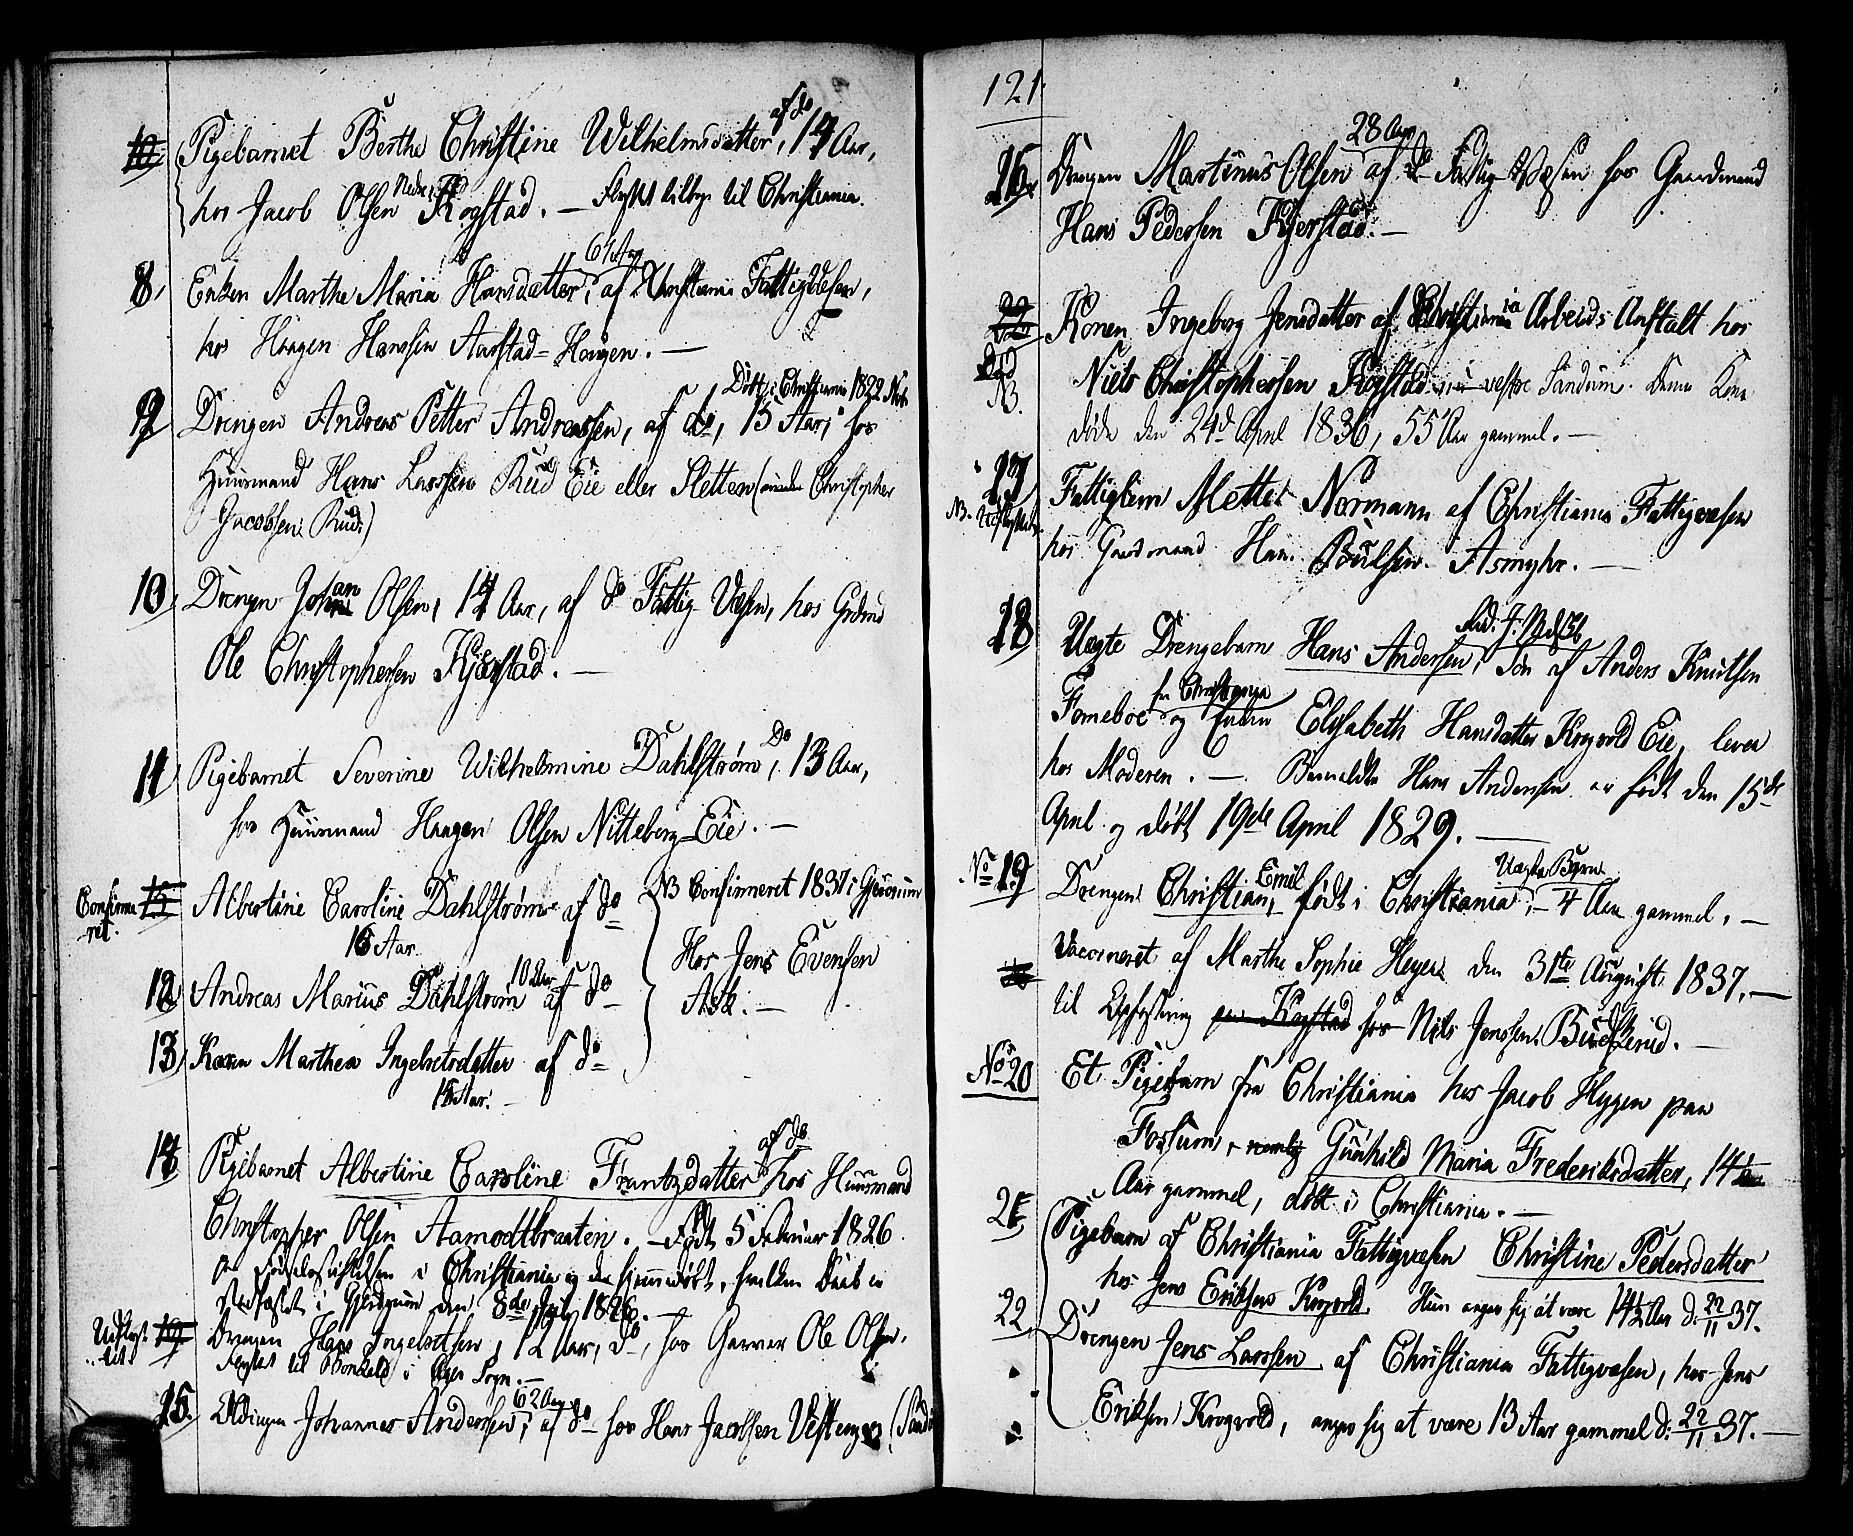 af do
10. Pigebarnet Berthe Christine Wilhelmsdatter, 14 Aar,
hos Jacob Olsen Nedre Kogstad. — Flyttet tilbage til Christiania.
61 Aar
8, Enken Marthe Maria Hansdatter, af Christiania Fattigvæsen,
hos Haagen Hansen Aarstad-Haugen. —
Døbt i Christiania 1822
9 Drengen Andreas Petter Andreassen, af do, 15 Aar, hos
Huusmand Hans Larssen Rud Eie eller Sletten ( Christopher
Jacobsen Rud.)
10, Drengen Johan Olsen, 14 Aar, af do Fattig Væsen, hos Grdmd
Ole Christophersen Kjærstad. —
Do
11 Pigebarnet Severine Wilhelmine Dahlstrøm, 13 Aar,
hos Huusmand Haagen Olsen Nitteberg-Eie. —
Confirmeret. 15 Albertine Caroline Dahlstrøm af do NB Confirmeret 1837 i Gjerdrum
16 Aar. Hos Jens Evensen
10 Aar
12 Andreas Marius Dahlstrøm af do Ask. —
13, Karen Marthea Ingebretsdatter af do
15 Aar. —
af do
14 Pigebarnet Albertine Caroline Frantzdatter hos Huusmand
Christopher Olsen Aamodtbraaten. — Født 5 Februar 1826
Fødselsstiftelsen i Christiania og der hjemmedøbt, hvilken Daab er
stadfæstet i Gjerdrum den 8de July 1826. —
Udflyttet. 19 Drengen Hans Ingebretsen, 12 Aar, do, hos Garver Ole Olsen.
Flyttet til i Sogn. —
62 Aar
15. Oldingen Johannes Andersen, af do hos Hans Jacobsen Vestengen
121.
28 Aar
16. Drengen Martinus Olsen af do Fattig Væsen hos Gaardmand
Hans Pedersen Kjerstad. —
22 Konen Ingeborg Jensdatter af Christiania Arbeids Anstalt hos
Død Niels Christophersen Kogstad nu vestre Sandum. Denne Kone
NB. døde den 24de April 1836, 55 Aar gammel. —
17 Fattiglem Mette Normann af Christiania Fattigvæsen
NB. Udflyttet hos Gaardmand Hans Poulsen Asmyhr. —
18 Uægte Drengebarn Hans Andersen, Søn af Anders Knudsen
fra Christiania
Forneboe og Enken Elisabeth Hansdatter Krogvold Eie, lever
hos Moderen. — Bemeldte Hans Andersen er født den 15de
April og døbt 19de April 1829. —
Uægte Barn
No 19 Drengen Christian Emil, født i Christiania, 4 Aar gammel, —
Vaccineret af Marthe Sophie Heyer den 31te August 1837. —
til Opfostring paa Kogstad hos Nils Jenssen Budskerud. —
No 20 Et Pigebarn fra Christiania hos Jacob Hygen paa
Fossum, nemlig Gunhild Maria Frederiksdatter, 14
Aar gammel, døbt i Christiania. —
21 Pigebarn af Christiania Fattigvæsen Christine Pedersdatter
hos Jens Eriksen Krogvold. Hun angav sig at være 14½ Aar d. 22/11 37.
22. Drengen Jens Larssen af Christiania Fattigvæsen, hos Jens
Eriksen Krogvold, angav sig at være 13 Aar gammel d. 22/11 37. —